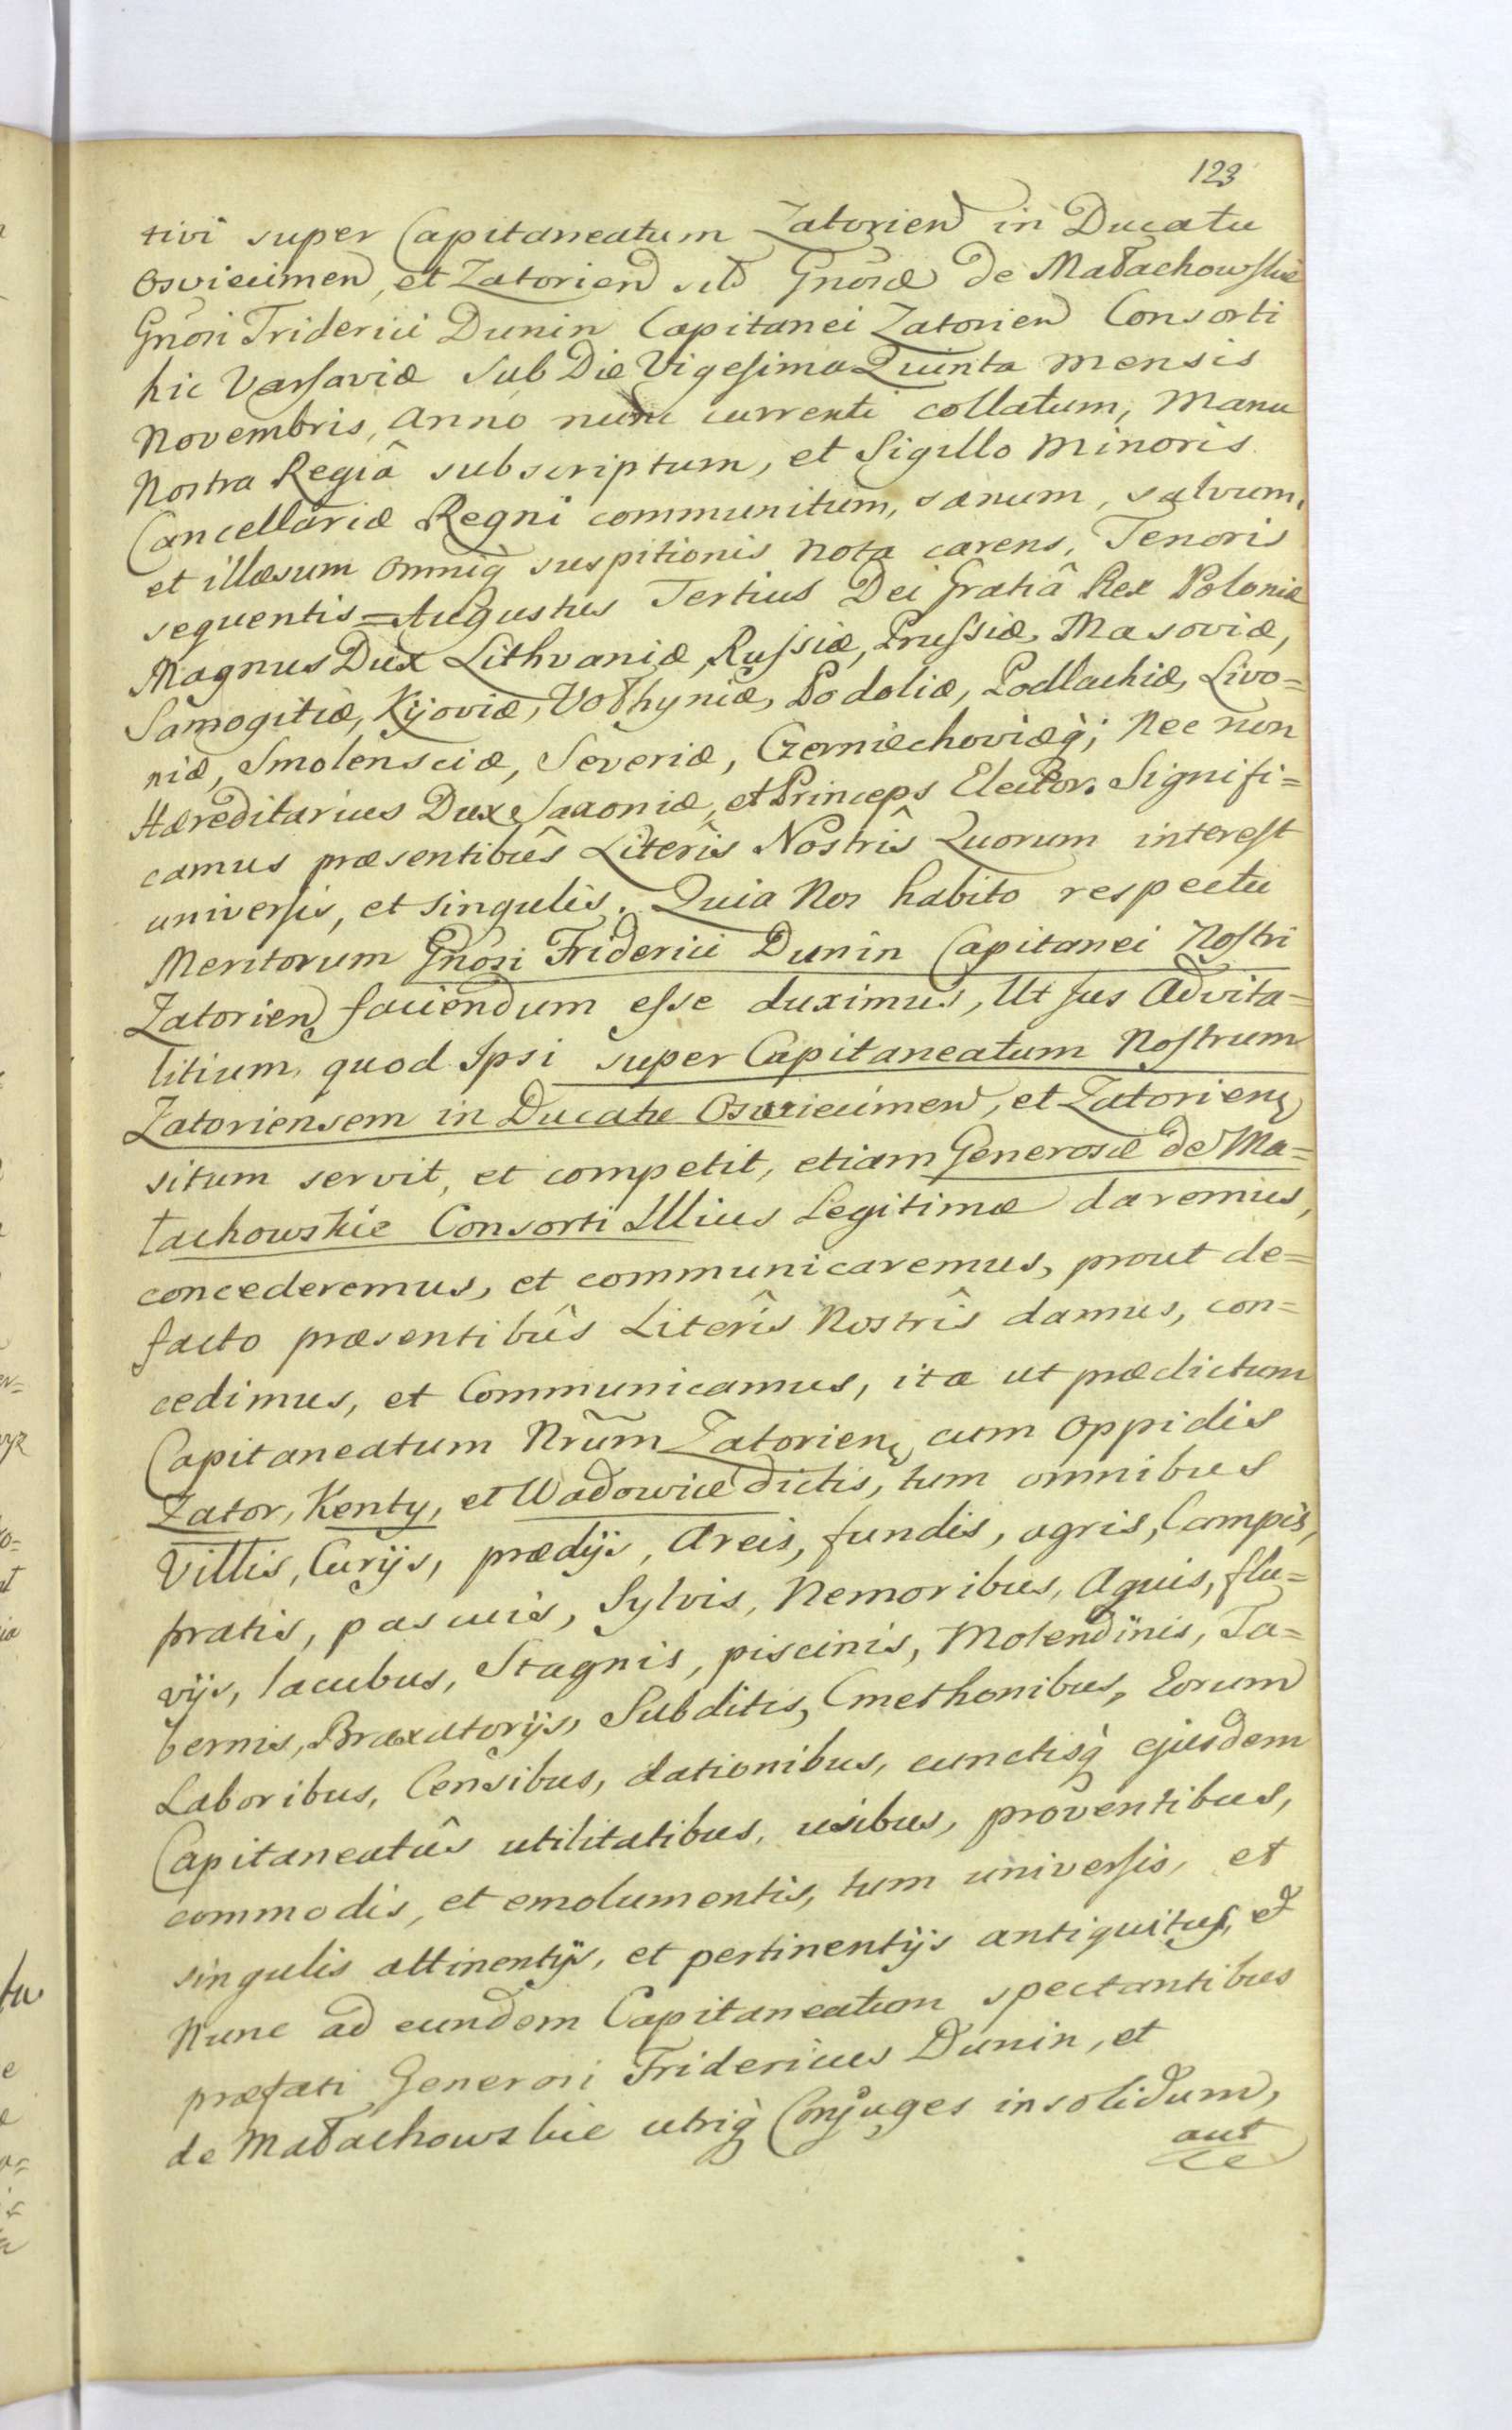 123
tivi super Capitaneatum Zatorien in Ducatu
Osviecimen, et Zatorien sito Gnõsæ de Małachowskie
Gnõsi Friderici Dunin Capitanei Zatorien Consorti
hic Varsaviæ sub Die Vigesima Quinta mensis
Novembris, anno nunc currenti collatum, Manu
Nostra Regiâ subscriptum, et Sigillo Minoris
Cancellariæ Regni communitum, sanum, salvum,
et illæsum omniq̀ suspitionis nota carens, Tenoris
sequentis = Augustus Tertius Dei Gratiâ Rex Poloniæ
Magnus Dux Lithvaniæ, Russiæ, Prussiæ, Masoviæ,
Samogitiæ, Kijoviæ, Vołhyniæ, Podoliæ, Podlachiæ, Livo=
niæ, Smolensciæ, Severiæ, Czerniechoviæq̀; Nec non
Hæreditarius Dux Saxoniæ, et Princeps Elector. Signifi=
camus præsentibûs Literîs Nostrîs Quorum interest
universis, et singulis. Quia Nos habito respectu
Meritorum Gnõsi Friderici Dunin Capitanei Nostri
Zatorien faciendum esse duximus, Ut Jus Advita=
litium, quod Ipsi super Capitaneatum Nostrum
Zatoriensem in Ducatu Osviecimen, et Zatorien
situm servit, et competit, etiam Generosæ de Ma=
łachowskie Consorti Illius Legitimæ daremus,
concederemus, et communicaremus, prout de=
facto præsentibûs Literîs Nostrîs damus, con=
cedimus, et Communicamus, ita ut prædictum
Capitaneatum Nrũm Zatorien, cum Oppidis
Zator, Kenty, et Wadowice dictis, tum omnibus
Villis, Curijs, prædijs, Areis, fundis, agris, Campis,
pratis, pascuis, Sylvis, Nemoribus, Aquis, flu=
vijs, lacubus, Stagnis, piscinis, Molendinis, Ta=
bernis, Braxatorijs, Subditis, Cmethonibus, Eorum
Laboribus, Censibus, dationibus, cunctisq̀ ejusdem
Capitaneatûs utilitatibus, usibus, proventibus,
commodis, et emolumentis, tum universis, et
singulis attinentijs, et pertinentijs antiquitus, et
Nunc ad eundem Capitaneatum spectantibus
præfati Generosi Fridericus Dunin, et
de Małachowskie utriq̀ Conjuges insolidum,
aut